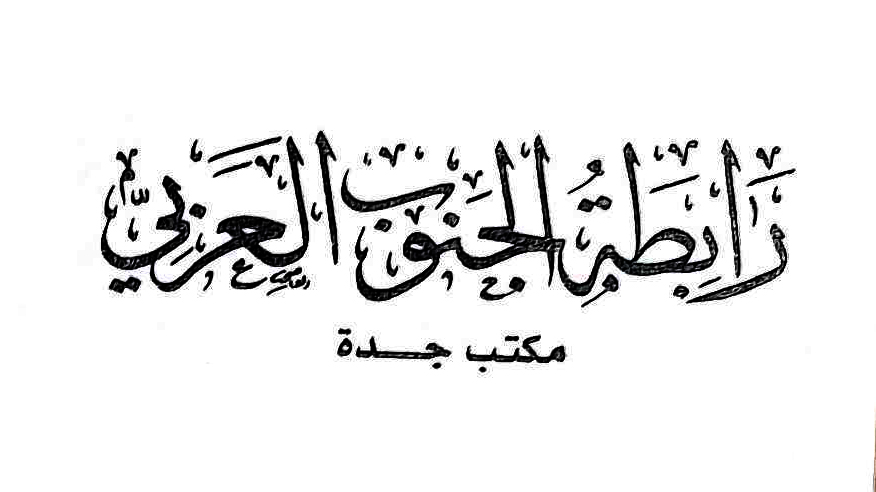 رابطة الجنوب العربي
مكتب جدة